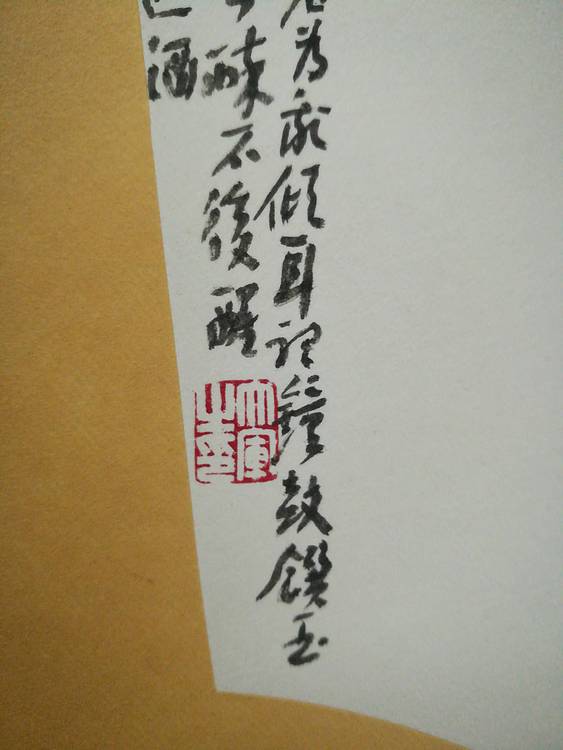 为我傾耳聽鐘鼓饌玉
醉不復醒
酒